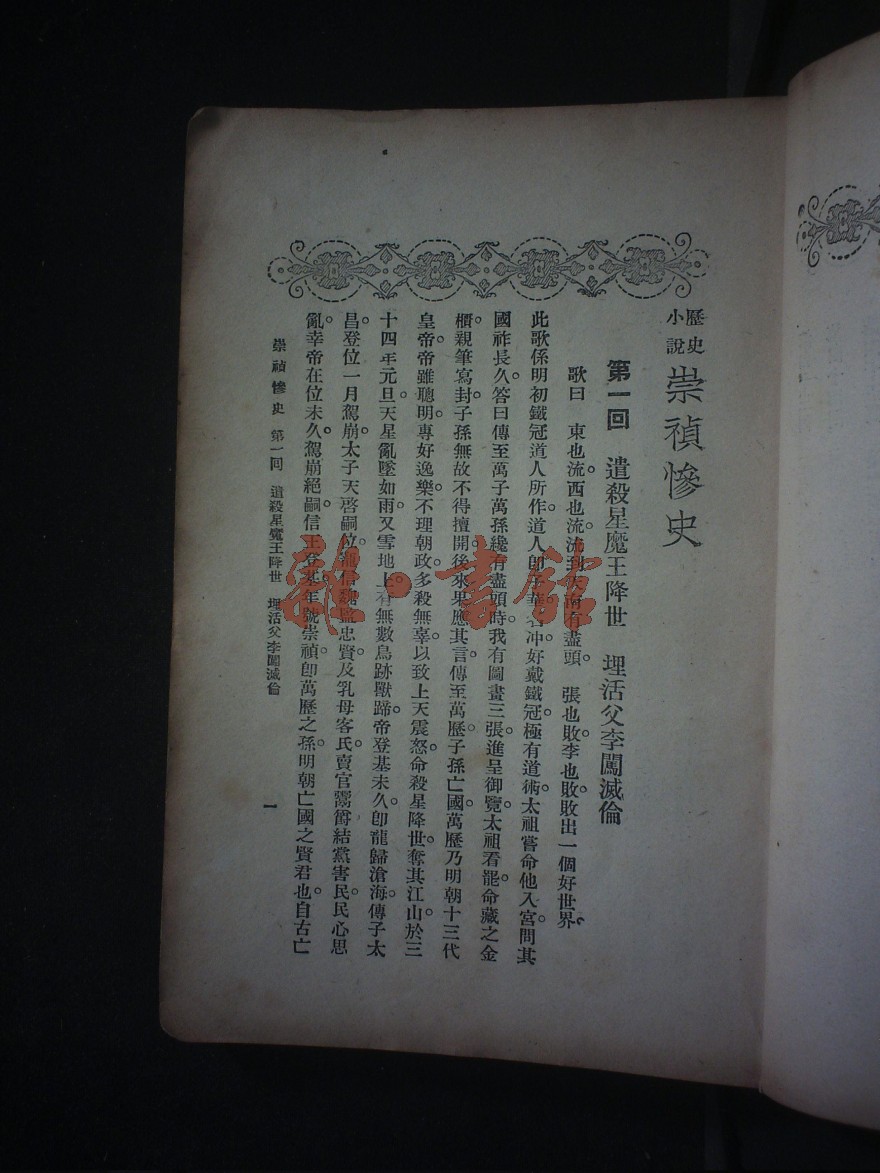 歷史小說 崇禎慘史
第一回 遣殺星魔王降世 埋活父李闖滅倫
歌曰 東也流。西也流。流到天南有盡頭。 張也敗。李也敗。敗出一個好世界。
此歌係明初鐵冠道人所作。道人卽子華名冲。好戴鐵冠。極有道術。太祖嘗命他入宮。問其
國祚長久。答曰傳至萬子萬孫。纔有盡頭時。我有圖畫三張。進呈御覽。太祖看罷。命藏之金
櫃。親筆寫封。子孫無故不得擅開。後來果應其言。傳至萬歷子孫亡國。萬歷乃明朝十三代
皇帝。帝雖聰明。專好逸樂。不理朝政。多殺無辜。以致上天震怒。命殺星降世。奪其江山。於三
十四年元旦。天星亂墜如雨。又雪地上。有無數鳥跡獸蹄。帝登基未久。卽龍歸滄海。傳子太
昌。登位一月駕崩。太子天啓嗣位。寵信魏監忠賢。及乳母客氏。賣官鬻爵。結黨害民。民心思
亂。幸帝在位未久。駕崩絕嗣。信王登基。年號崇禎。卽萬歷之孫。明朝亡國之賢君也。自古亡
崇禎慘史 第一回 遣殺星魔王降世 埋活父李闖滅倫
一
雜·書館